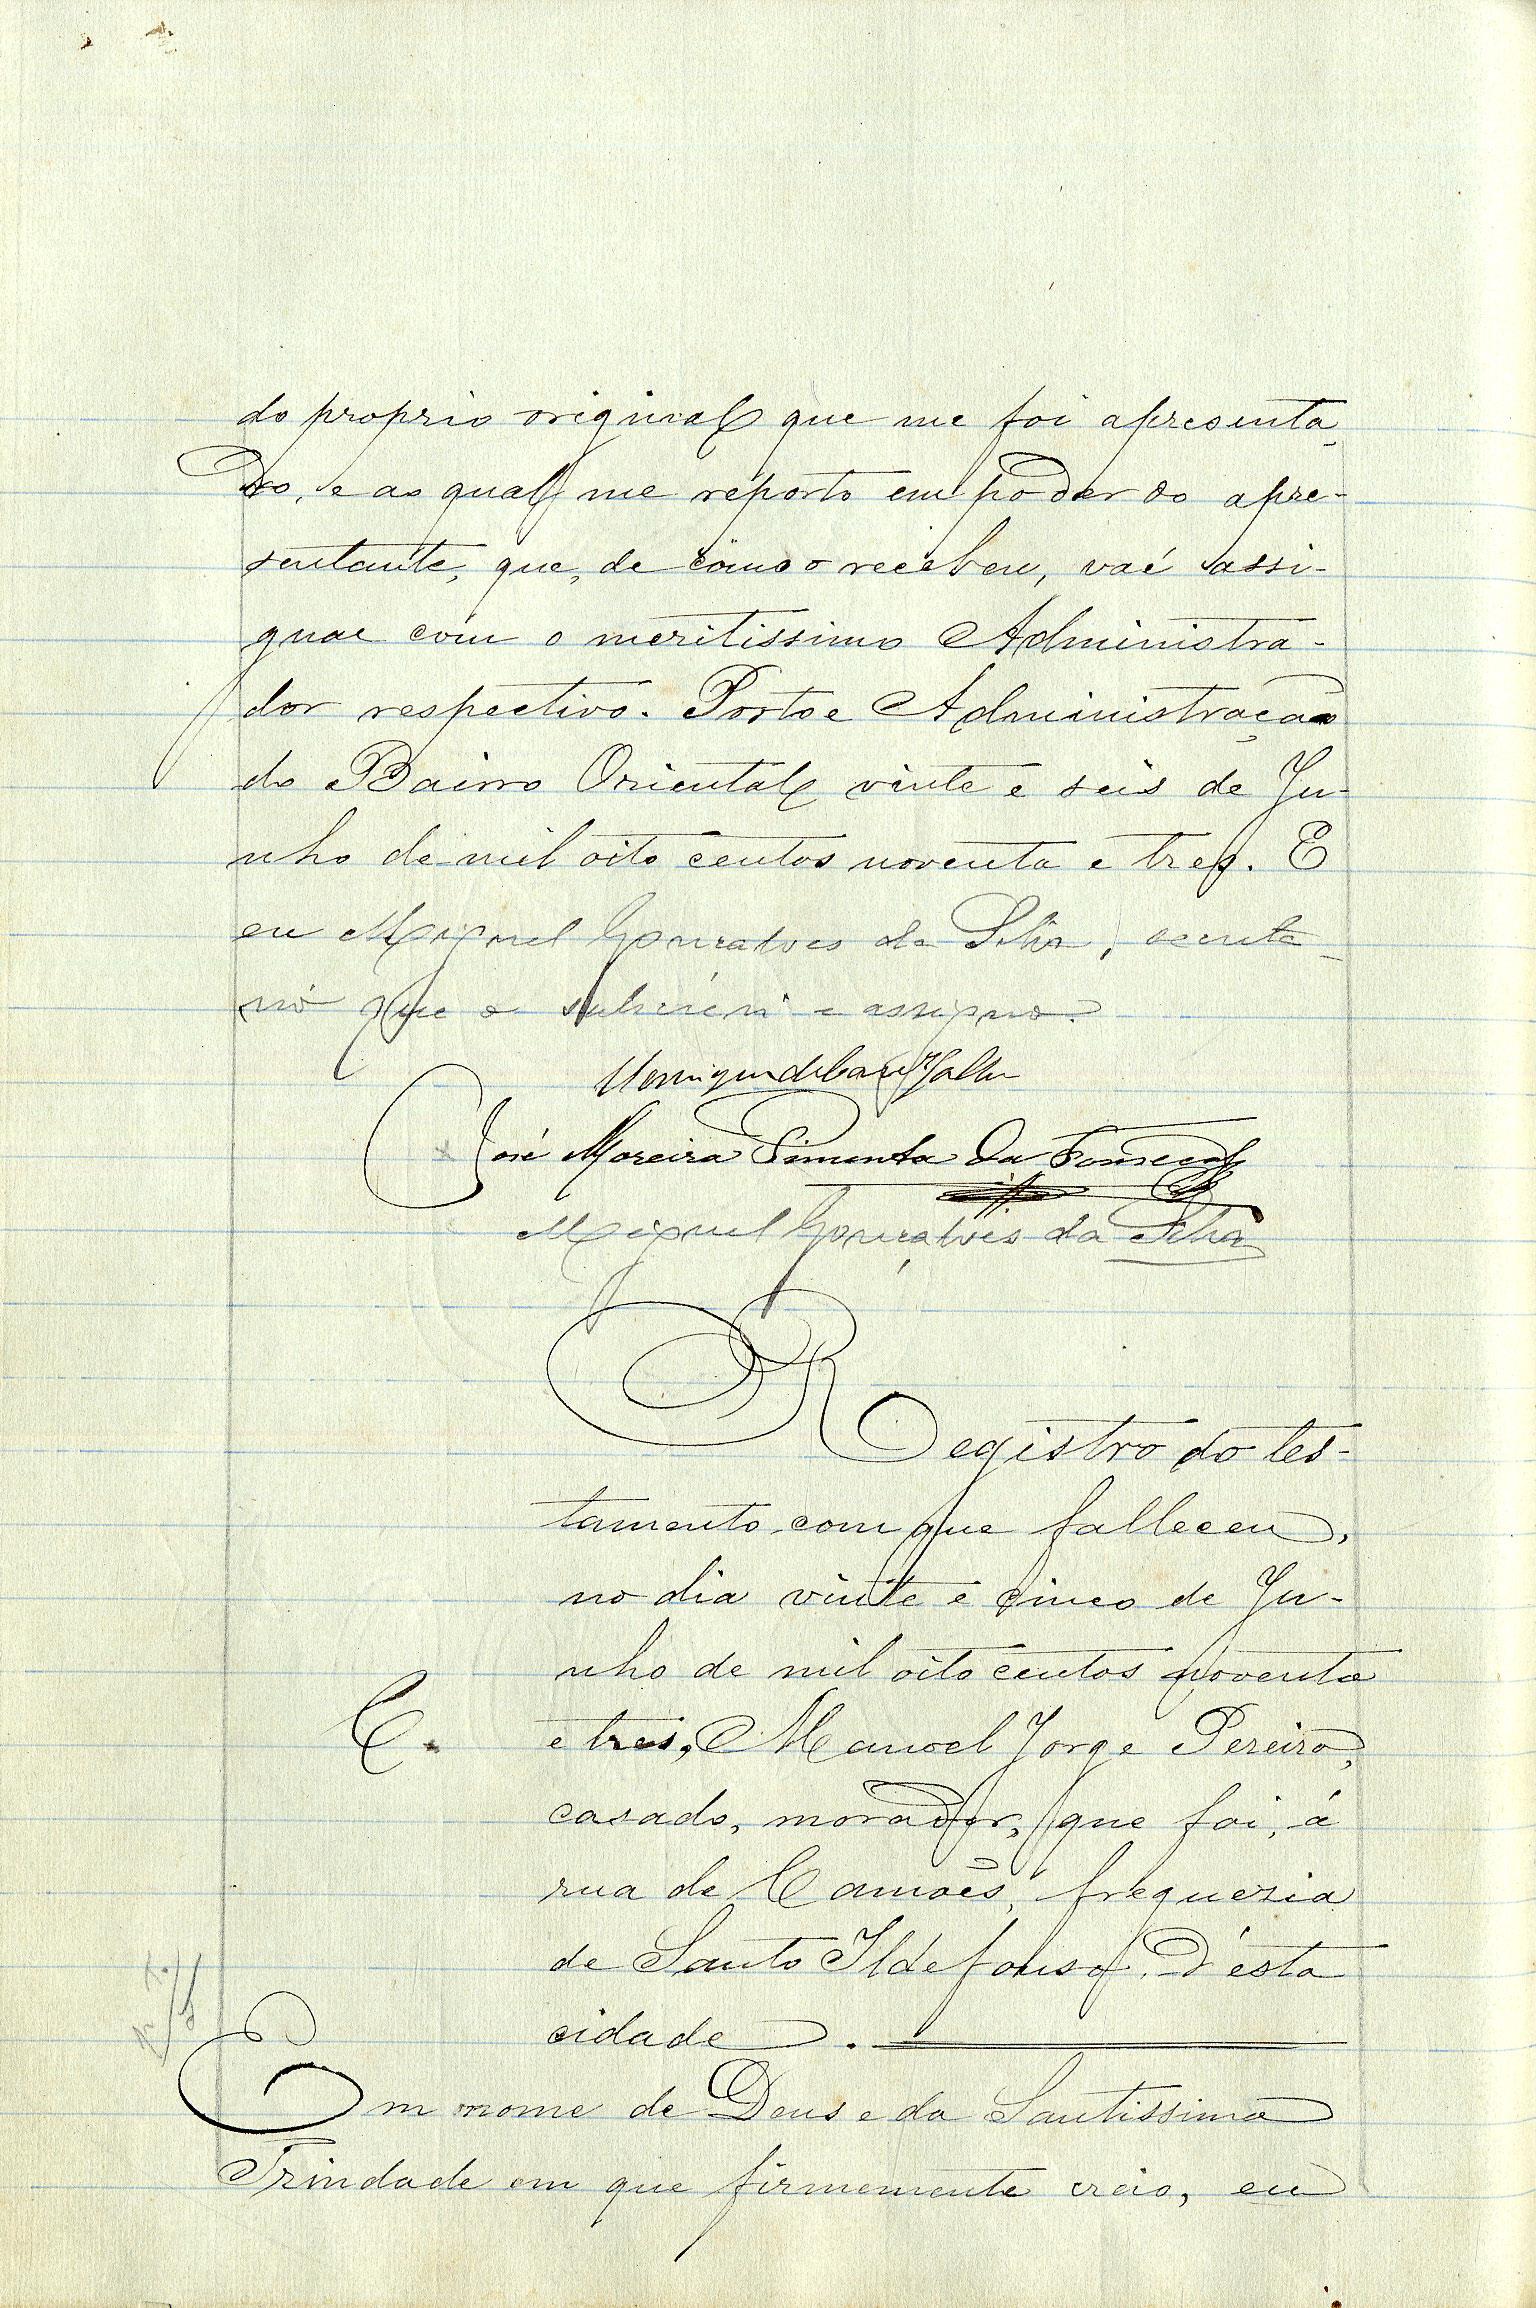 do proprio original que me foi apresenta-
do, e ao qual me reporto em poder do apre-
sentante, que, de como o recebeu, vae assi-
gnar com o meritissimo Administra-
dor respectivo. Porto e Administração
do Bairro Oriental vinte e seis de Ju-
nho de mil oito centos noventa e tres. E
eu Miguel Gonçalves da Silva, secreta-
rio que o subscrevi e assigno.
José Moreira Pimenta da Fonseca
Miguel Gonçalves da Silva
Registro do tes-
tamento com que falleceu,
no dia vinte e cinco de Ju-
nho de mil oito centos noventa
C. e tres, Manoel Jorge Pereira,
casado, morador, que foi, á
rua de Camões, freguezia
de Santo Ildefonso, d'esta
cidade.
Em nome de Deus e da Santissima
Trindade em que firmemente creio, eu